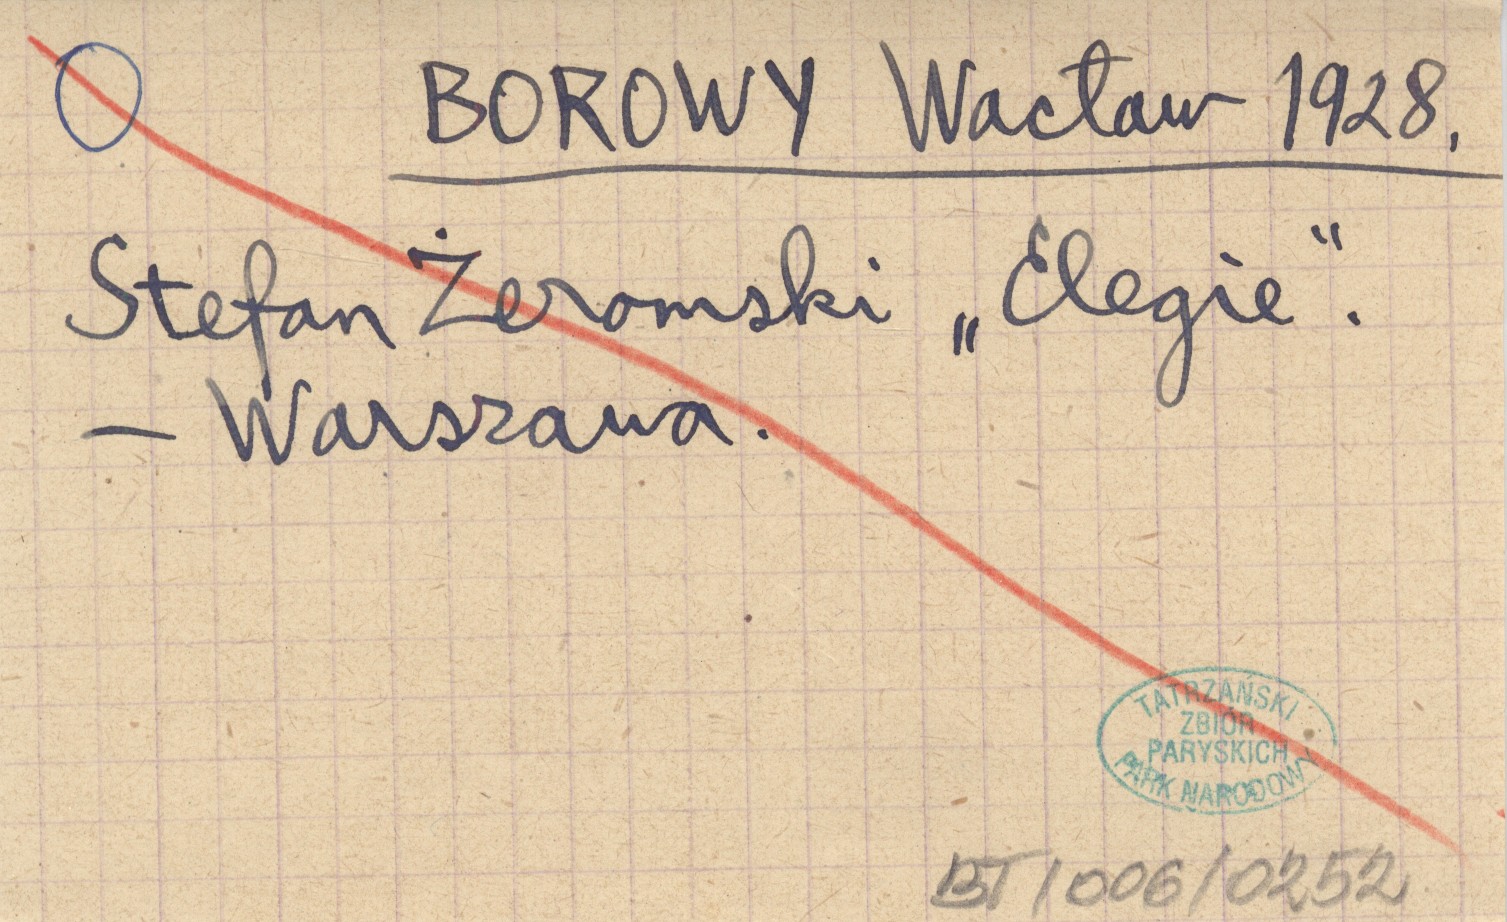 BOROWY Wacław 1928.
Stefan Żeromski „Elegie“.
— Warszawa.
TATRZAŃSKI
ZBIÓR
PARYSKICH
PARK NARODOWY
BT/006/0252